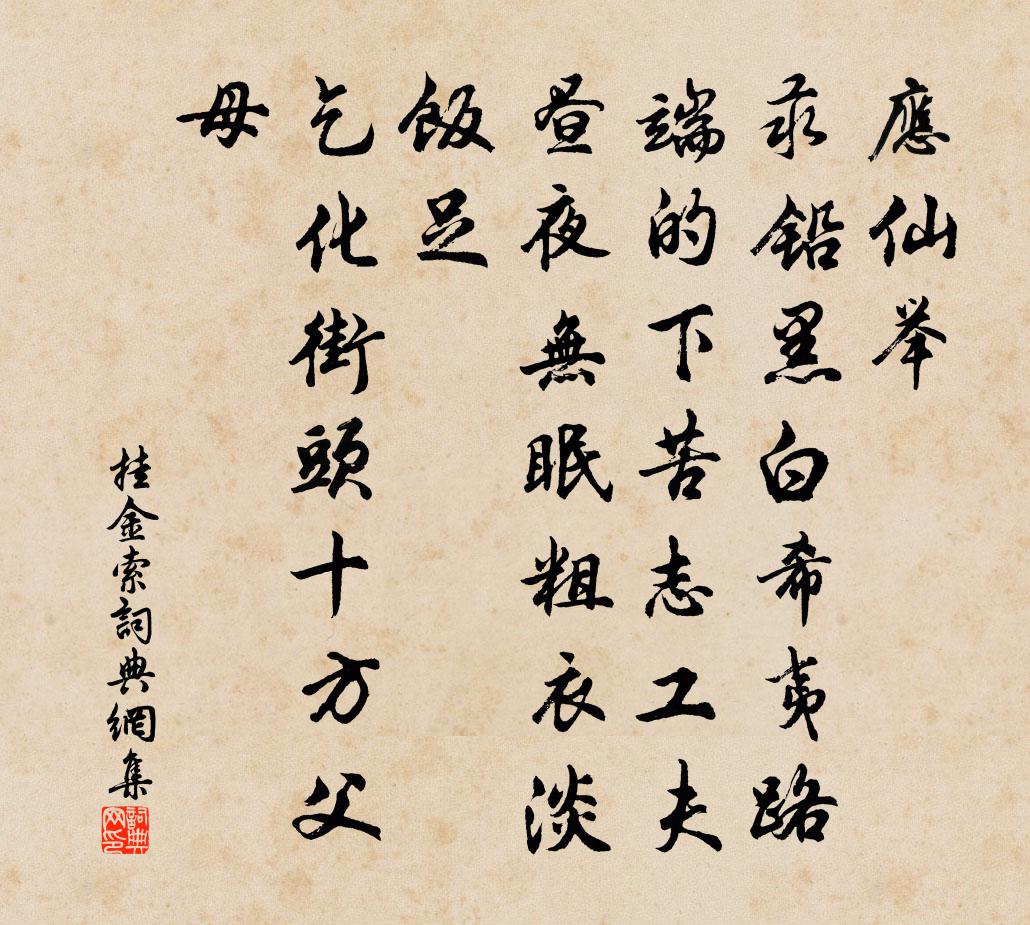 應仙举
汞鉛黑白希夷路
端的下苦志工夫
昼夜無眠粗衣淡
飯足
乞化街頭十方父
母
挂金索詞典網集
詞典网印